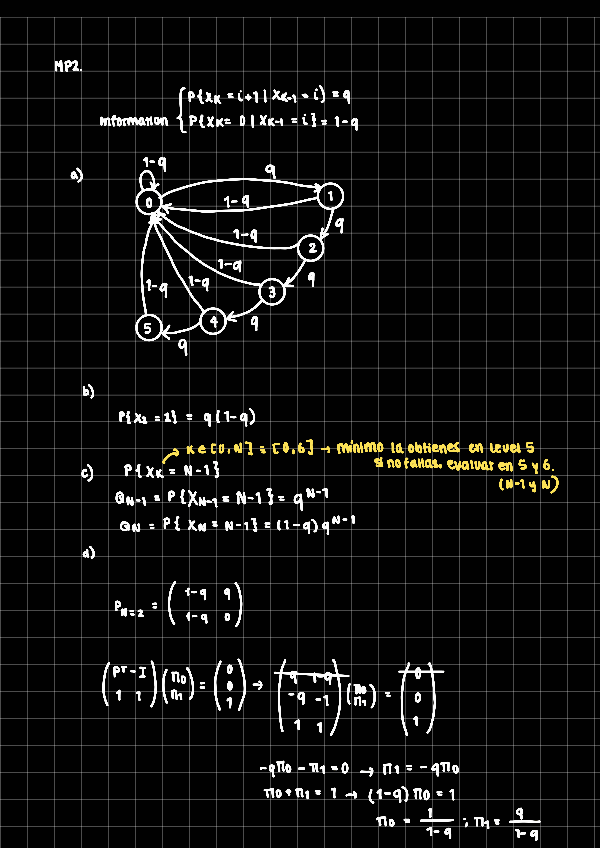 MP2.
Information { P{X_K = i+1 | X_{K-1} = i} = q
P{X_K = 0 | X_{K-1} = i} = 1-q
a)
1-q
q
0
1-q
1
1-q
q
2
1-q
q
1-q
1-q
3
5
4
q
q
b)
P{X_2 = 1} = q(1-q)
K ∈ [0,N] = [0,6] → mínimo la obtienes en level 5
si no fallas, evaluar en 5 y 6.
(N-1 y N)
c) P{X_K = N-1}
Θ_{N-1} = P{X_{N-1} = N-1} = q^{N-1}
Θ_N = P{X_N = N-1} = (1-q) q^{N-1}
d)
P_{N=2} = ( 1-q q
1-q 0 )
( P^T - I
1 1 ) ( π_0
π_1 ) = ( 0
0
1 ) → ( q 1-q
-q -1
1 1 ) ( π_0
π_1 ) = ( 0
0
1 )
-qπ_0 - π_1 = 0 → π_1 = -qπ_0
π_0 + π_1 = 1 → (1-q) π_0 = 1
π_0 = 1/(1-q) ; π_1 = q/(1-q)